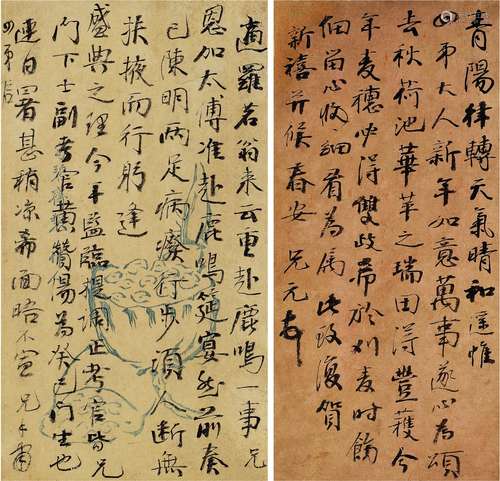 青陽律轉天氣晴和遙惟
四弟大人新年如意萬事遂心為頌
去秋荷池華華之瑞田得豐穫今
年麥穗必得雙歧希於刈麥時飭
佃留心收細看為屬此致復賀
新禧並候春安 兄元
適羅茗翁來云重赴鹿鳴一事兄
恩加太傅准赴鹿鳴筵宴然前奏
已陳明兩足病痿行步須人斷無
扶掖而行躬逢
盛典之理今年監臨提調正考官皆兄
門下士副考官黃贊湯為癸巳門生也
連日署甚稍涼希面晤不宣 兄
四弟